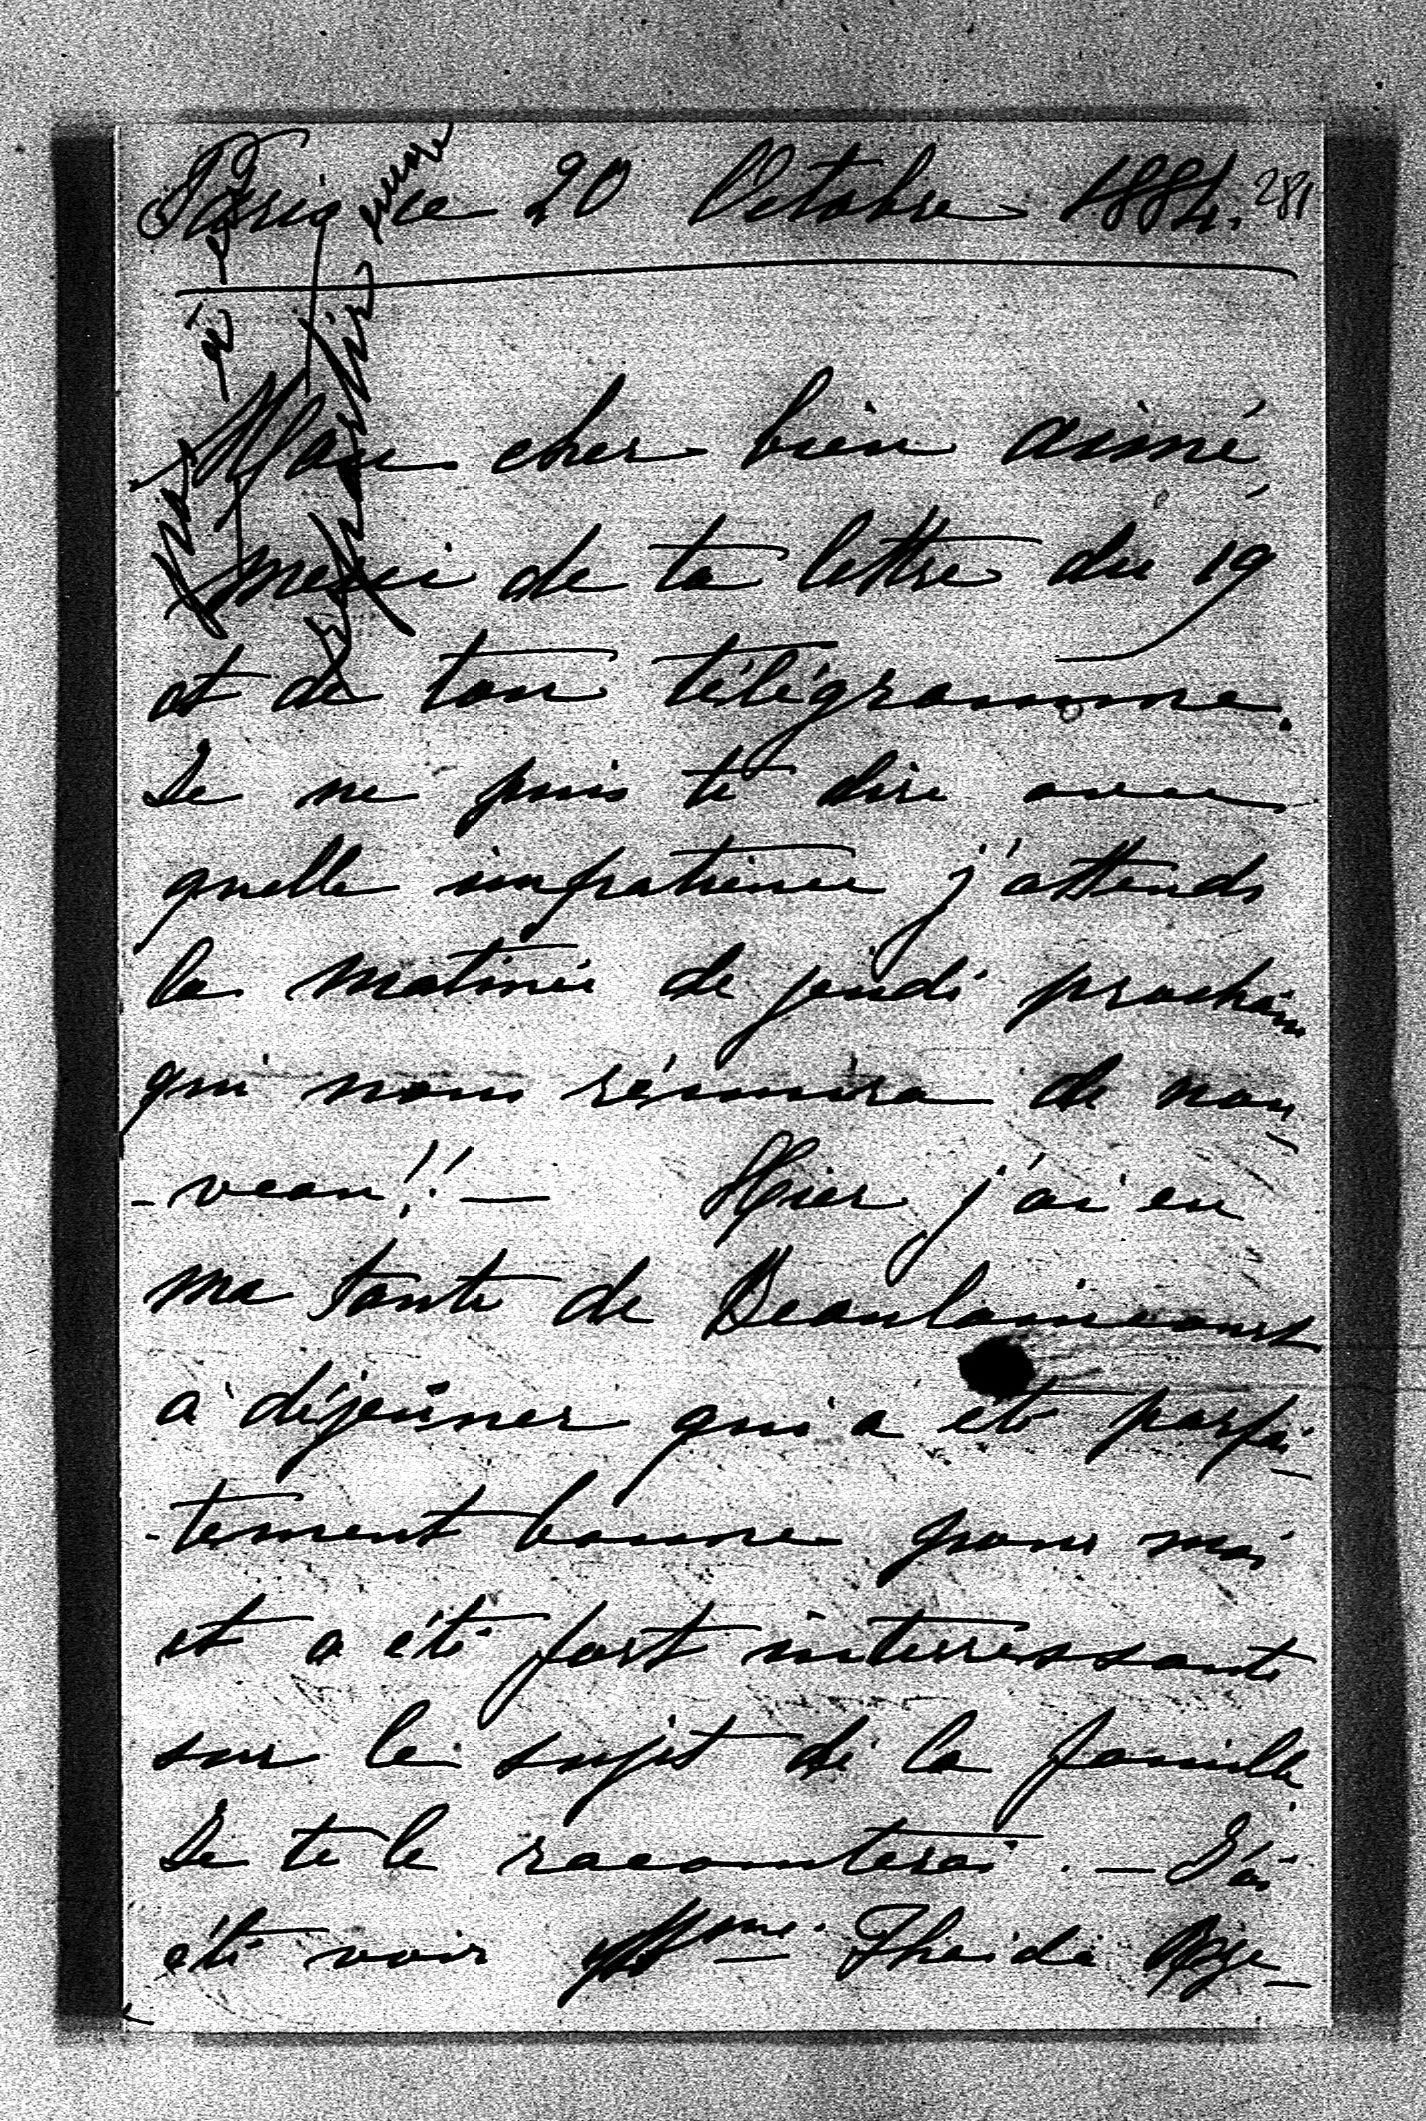 Paris le 20 Octobre 1884. 281
Mon cher bien aimé
merci de ta lettre du 19
et de ton télégramme.
Je ne puis te dire avec
quelle impatience j'attends
la matinée de jeudi prochain
qui nous réunira de nou
-veau!! — Hier j'ai eu
ma tante de Beaulaincourt
a déjeûner qui a eté parfai-
-tement bonne pour moi
et a été fort interressante
sur le sujet de la famille
Je te le raconterai. — J'ai
été voir Mme.